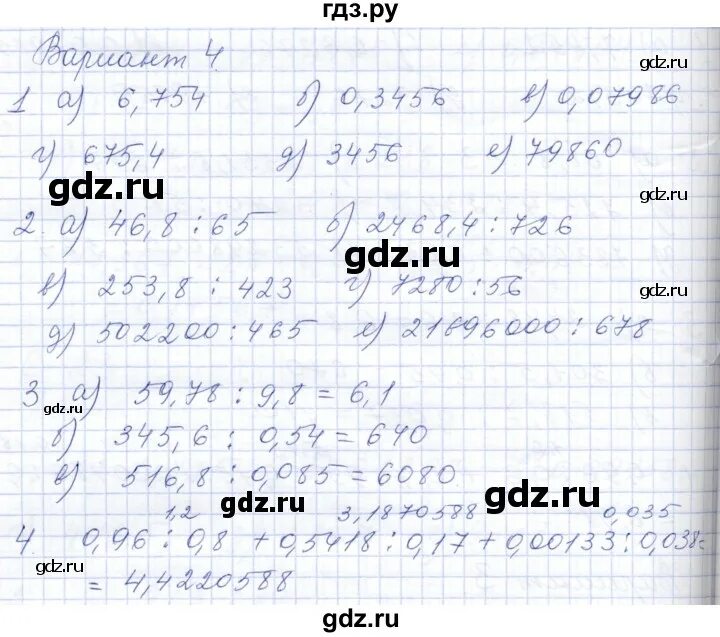 гдз.ру
Вариант 4
1 а) 6,754 б) 0,3456 в) 0,07986
г) 675,4 д) 3456 е) 79860
gdz.ru
gdz.ru
gdz.ru
2. а) 46,8 : 65 б) 2468,4 : 726
gdz.ru
в) 253,8 : 423 г) 7280 : 56
gdz.ru
д) 502200 : 465 е) 21696000 : 678
3 а) 59,78 : 9,8 = 6,1
gdz.ru
б) 345,6 : 0,54 = 640
в) 516,8 : 0,085 = 6080
gdz.ru
gdz.ru
1,2 3,1870588 0,035
4. 0,96 : 0,8 + 0,5418 : 0,17 + 0,00133 : 0,038=
gdz.ru
gdz.ru
= 4,4220588
gdz.ru